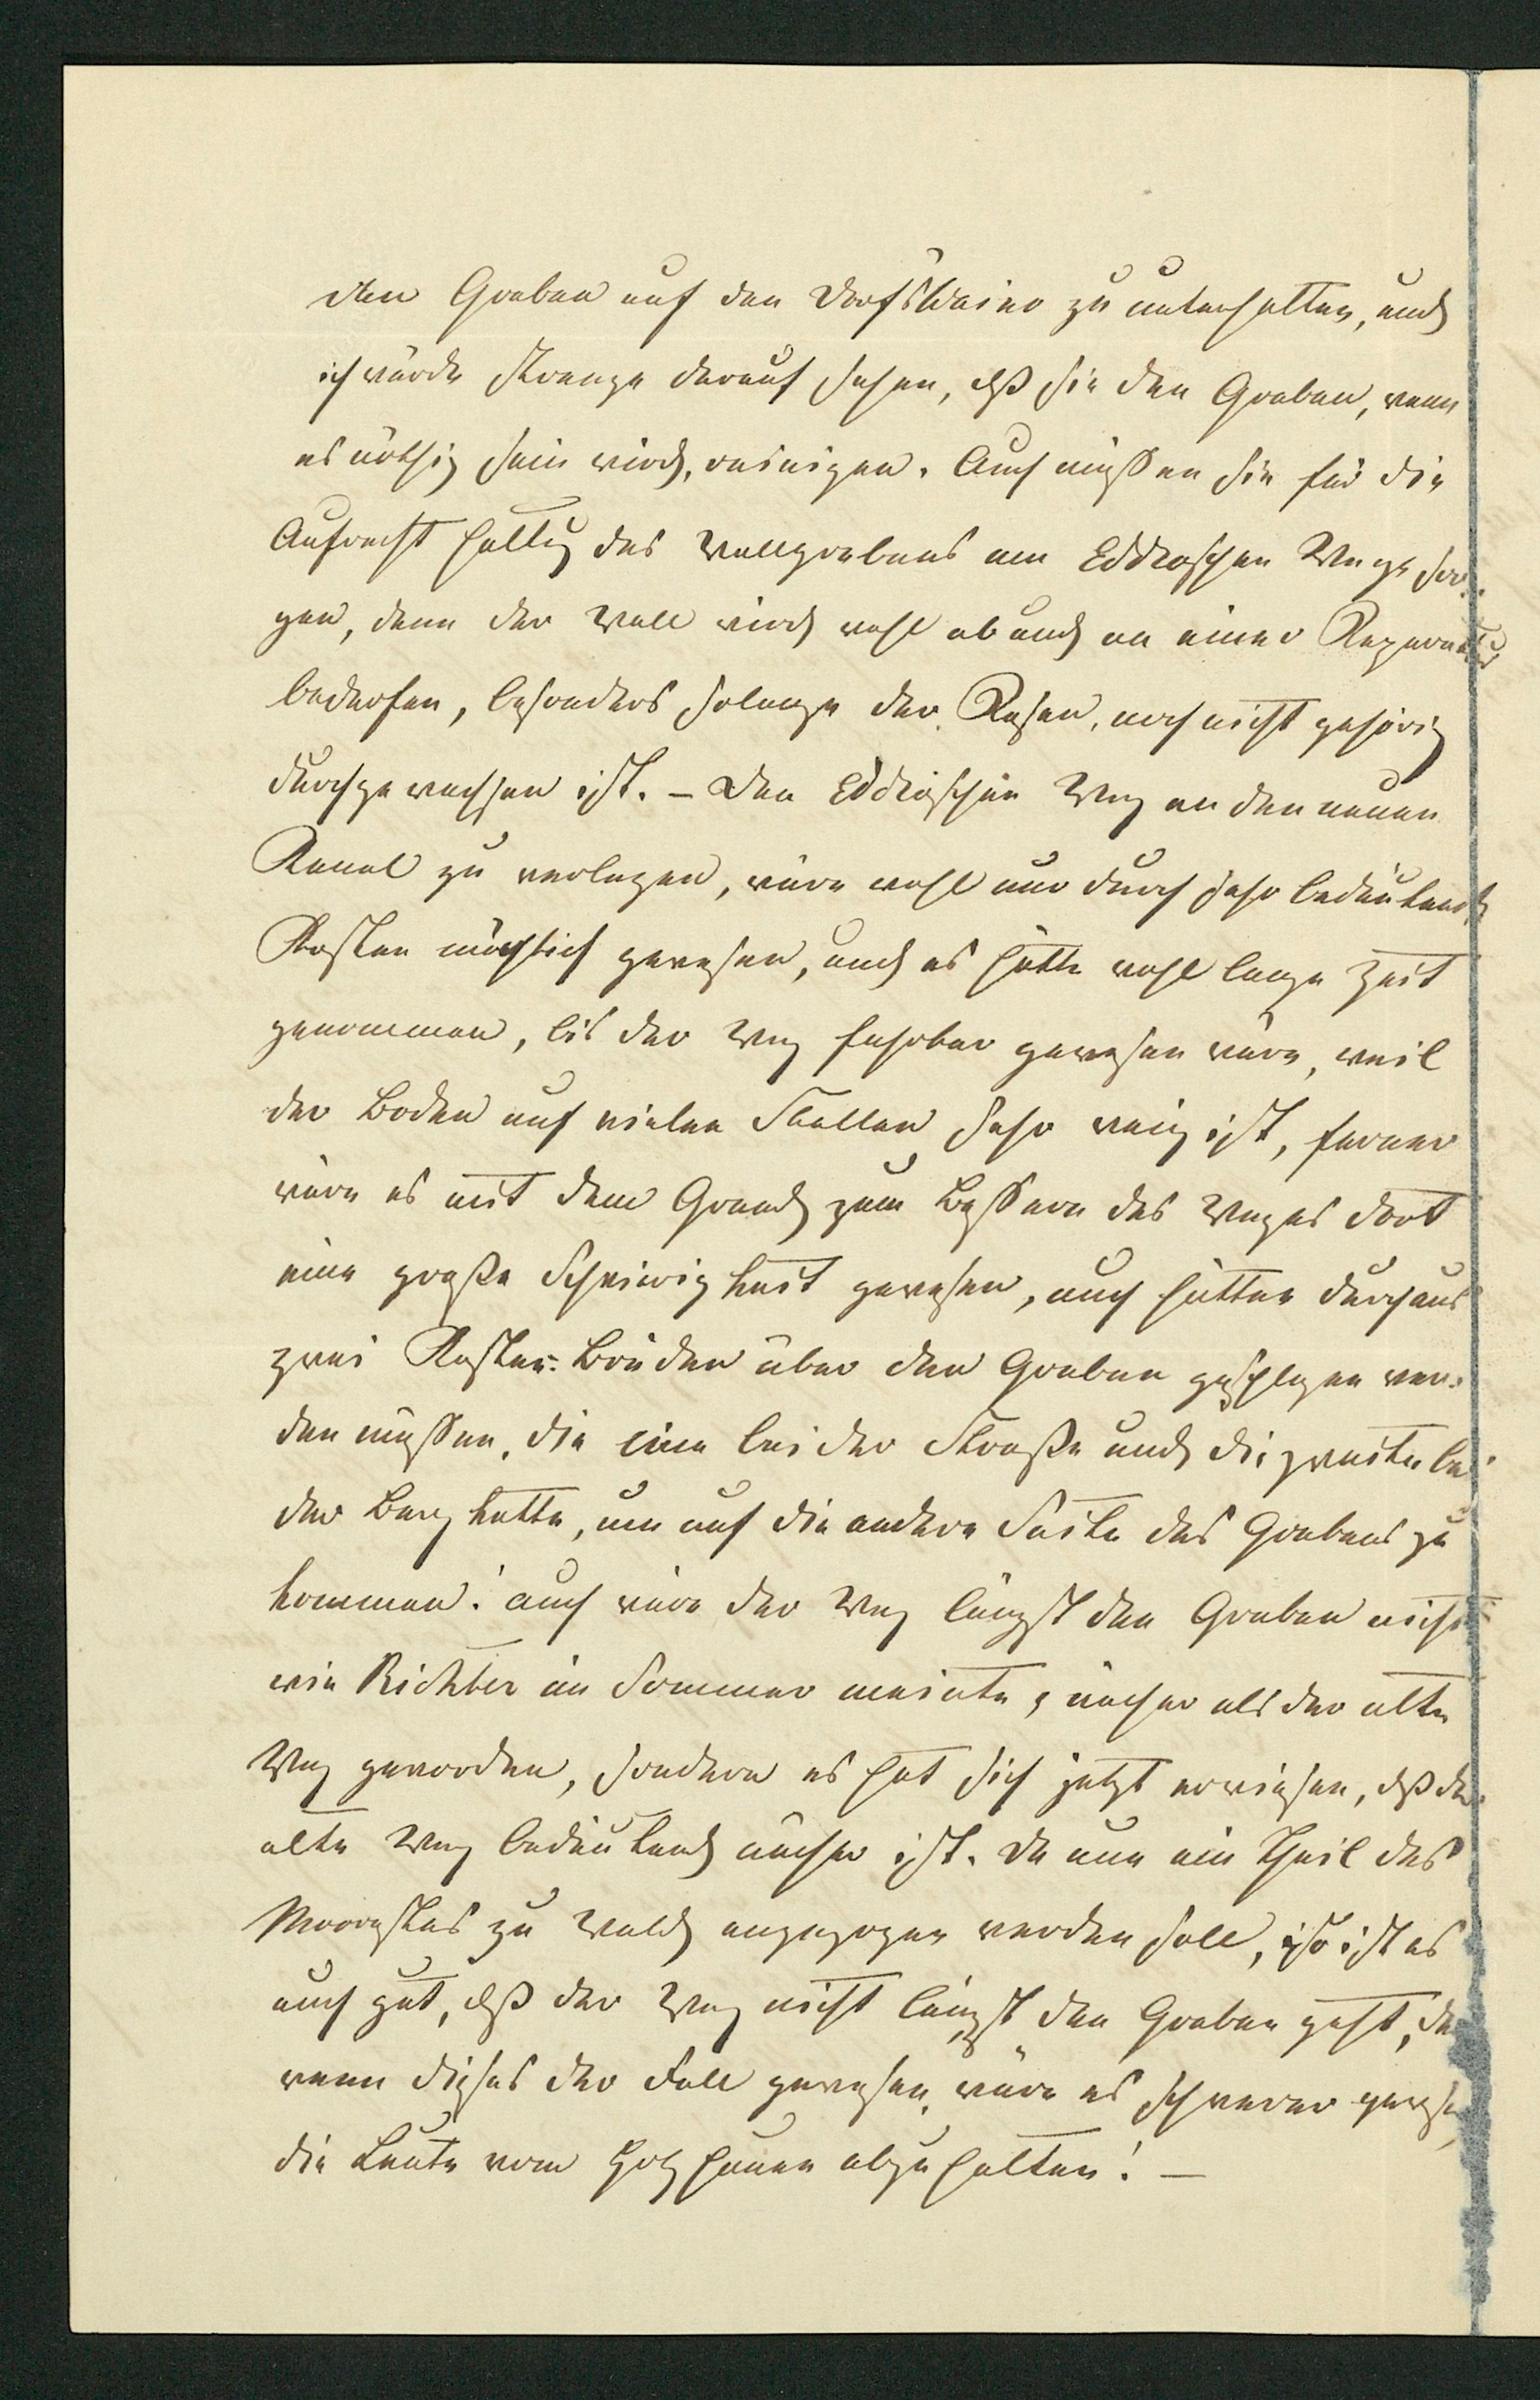 den Graben auf den Dorfsteine zu unterhalten, und
ich würde strenge darauf sehen, dß sie den Graben, wenn
es nöthig sein wird, reinigen. Auch müssen sie für die
Aufrecht haltg des Wallgrabens am Eddraschen Wege sor-
gen, denn der Wall wird wohl ab und an einer Reparatur
bedürfen, besonders solange der Rasen, noch nicht gehörig
durchgewachsen ist. – Den Eddraschen Weg an den neuen
Kanal zu verlegen, wäre wohl nur durch sehr bedeutende
Kosten möglich gewesen, und es hätte wohl lange Zeit
genommen, bis der Weg fahrbar gewesen wäre, weil
der Boden auf vielen Stellen sehr weich ist, ferner
wäre es mit dem Grand zum Bessern des Weges dort
eine große Schwierigkeit gewesen, auch hätten durchaus
zwei Brücken über den Graben geschlagen wer-
den müssen, die eine bei der Straße und die zweite bei
der , um auf die andere Seite des Grabens zu
kommen; auch wäre der Weg längst den Graben nicht
wie Richter im Sommer meinte, näher als der alte
Weg geworden, sondern es hat sich jetzt erwiesen, dß der
alte Weg bedeutend näher ist. Da nun ein Theil des
Moorastes zu Wald angezogen werden soll, so ist es
auch gut, dß der Weg nicht längst den Graben geht, da
wenn dieses der Fall gewesen, wäre es schwerer gewesen,
die Leute vom Holzhauen abzuhalten! –